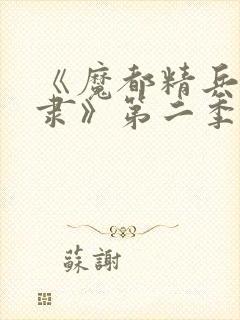 《魔都精兵
隶》第二季
蘇謝